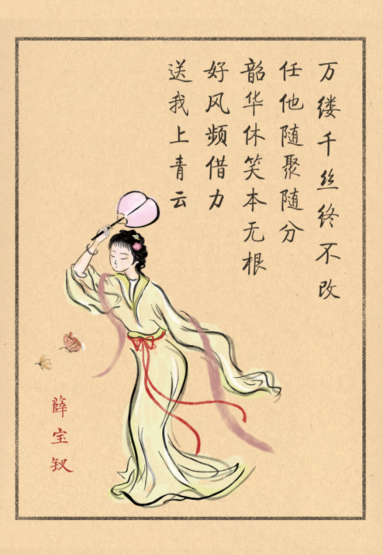 万缕千丝终不改
任他随聚随分
韶华休笑本无根
好风频借力
送我上青云
薛宝钗